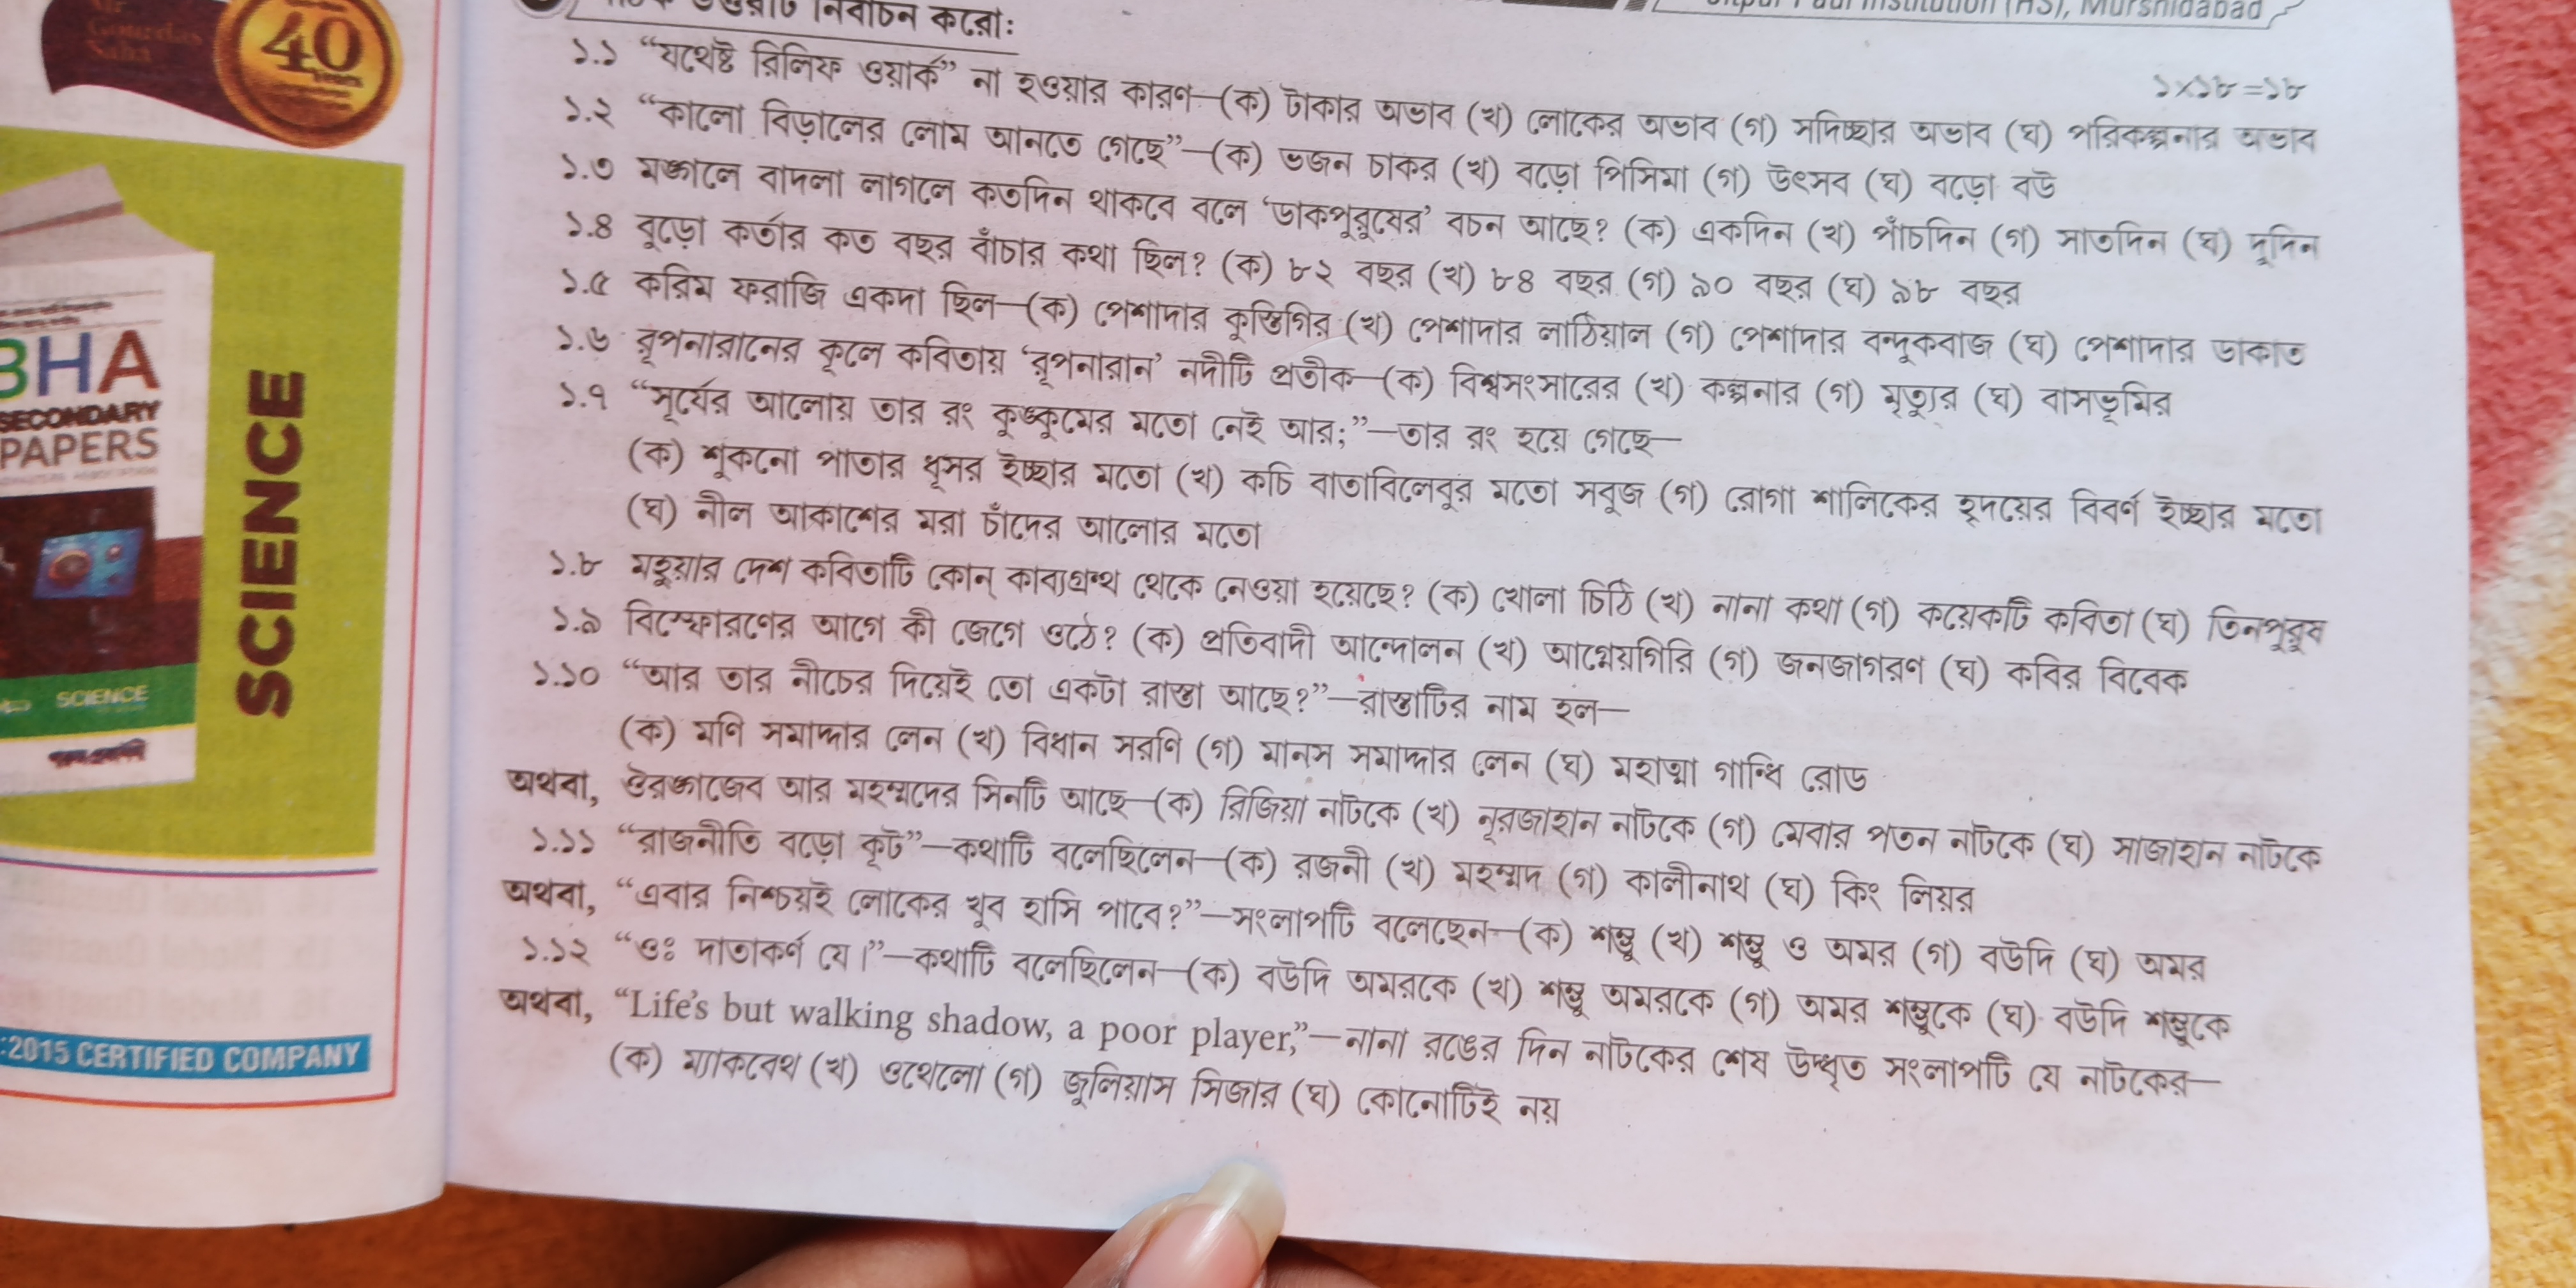 40
Years
BHA
SECONDARY
PAPERS
SCIENCE
SCIENCE
:2015 CERTIFIED COMPANY
Institution (HS), Murshidabad
নির্বাচন করো:
১×১৮=১৮
১.১ “যথেষ্ট রিলিফ ওয়ার্ক” না হওয়ার কারণ—(ক) টাকার অভাব (খ) লোকের অভাব (গ) সদিচ্ছার অভাব (ঘ) পরিকল্পনার অভাব
১.২ “কালো বিড়ালের লোম আনতে গেছে”—(ক) ভজন চাকর (খ) বড়ো পিসিমা (গ) উৎসব (ঘ) বড়ো বউ
১.৩ মঙ্গলে বাদলা লাগলে কতদিন থাকবে বলে ‘ডাকপুরুষের’ বচন আছে? (ক) একদিন (খ) পাঁচদিন (গ) সাতদিন (ঘ) দুদিন
১.৪ বুড়ো কর্তার কত বছর বাঁচার কথা ছিল? (ক) ৮২ বছর (খ) ৮৪ বছর (গ) ৯০ বছর (ঘ) ৯৮ বছর
১.৫ করিম ফরাজি একদা ছিল—(ক) পেশাদার কুস্তিগির (খ) পেশাদার লাঠিয়াল (গ) পেশাদার বন্দুকবাজ (ঘ) পেশাদার ডাকাত
১.৬ রূপনারানের কূলে কবিতায় ‘রূপনারান’ নদীটি প্রতীক—(ক) বিশ্বসংসারের (খ) কল্পনার (গ) মৃত্যুর (ঘ) বাসভূমির
১.৭ “সূর্যের আলোয় তার রং কুঙ্কুমের মতো নেই আর;”—তার রং হয়ে গেছে—
(ক) শুকনো পাতার ধূসর ইচ্ছার মতো (খ) কচি বাতাবিলেবুর মতো সবুজ (গ) রোগা শালিকের হৃদয়ের বিবর্ণ ইচ্ছার মতো
(ঘ) নীল আকাশের মরা চাঁদের আলোর মতো
১.৮ মহুয়ার দেশ কবিতাটি কোন্ কাব্যগ্রন্থ থেকে নেওয়া হয়েছে? (ক) খোলা চিঠি (খ) নানা কথা (গ) কয়েকটি কবিতা (ঘ) তিনপুরুষ
১.৯ বিস্ফোরণের আগে কী জেগে ওঠে? (ক) প্রতিবাদী আন্দোলন (খ) আগ্নেয়গিরি (গ) জনজাগরণ (ঘ) কবির বিবেক
১.১০ “আর তার নীচের দিয়েই তো একটা রাস্তা আছে?”—রাস্তাটির নাম হল—
(ক) মণি সমাদ্দার লেন (খ) বিধান সরণি (গ) মানস সমাদ্দার লেন (ঘ) মহাত্মা গান্ধি রোড
অথবা, ঔরঙ্গজেব আর মহম্মদের সিনটি আছে—(ক) রিজিয়া নাটকে (খ) নূরজাহান নাটকে (গ) মেবার পতন নাটকে (ঘ) সাজাহান নাটকে
১.১১ “রাজনীতি বড়ো কূট”—কথাটি বলেছিলেন—(ক) রজনী (খ) মহম্মদ (গ) কালীনাথ (ঘ) কিং লিয়র
অথবা, “এবার নিশ্চয়ই লোকের খুব হাসি পাবে?”—সংলাপটি বলেছেন—(ক) শম্ভু (খ) শম্ভু ও অমর (গ) বউদি (ঘ) অমর
১.১২ “ওঃ দাতাকর্ণ যে।”—কথাটি বলেছিলেন—(ক) বউদি অমরকে (খ) শম্ভু অমরকে (গ) অমর শম্ভুকে (ঘ) বউদি শম্ভুকে
অথবা, “Life’s but walking shadow, a poor player,”—নানা রঙের দিন নাটকের শেষ উদ্ধৃত সংলাপটি যে নাটকের—
(ক) ম্যাকবেথ (খ) ওথেলো (গ) জুলিয়াস সিজার (ঘ) কোনোটিই নয়